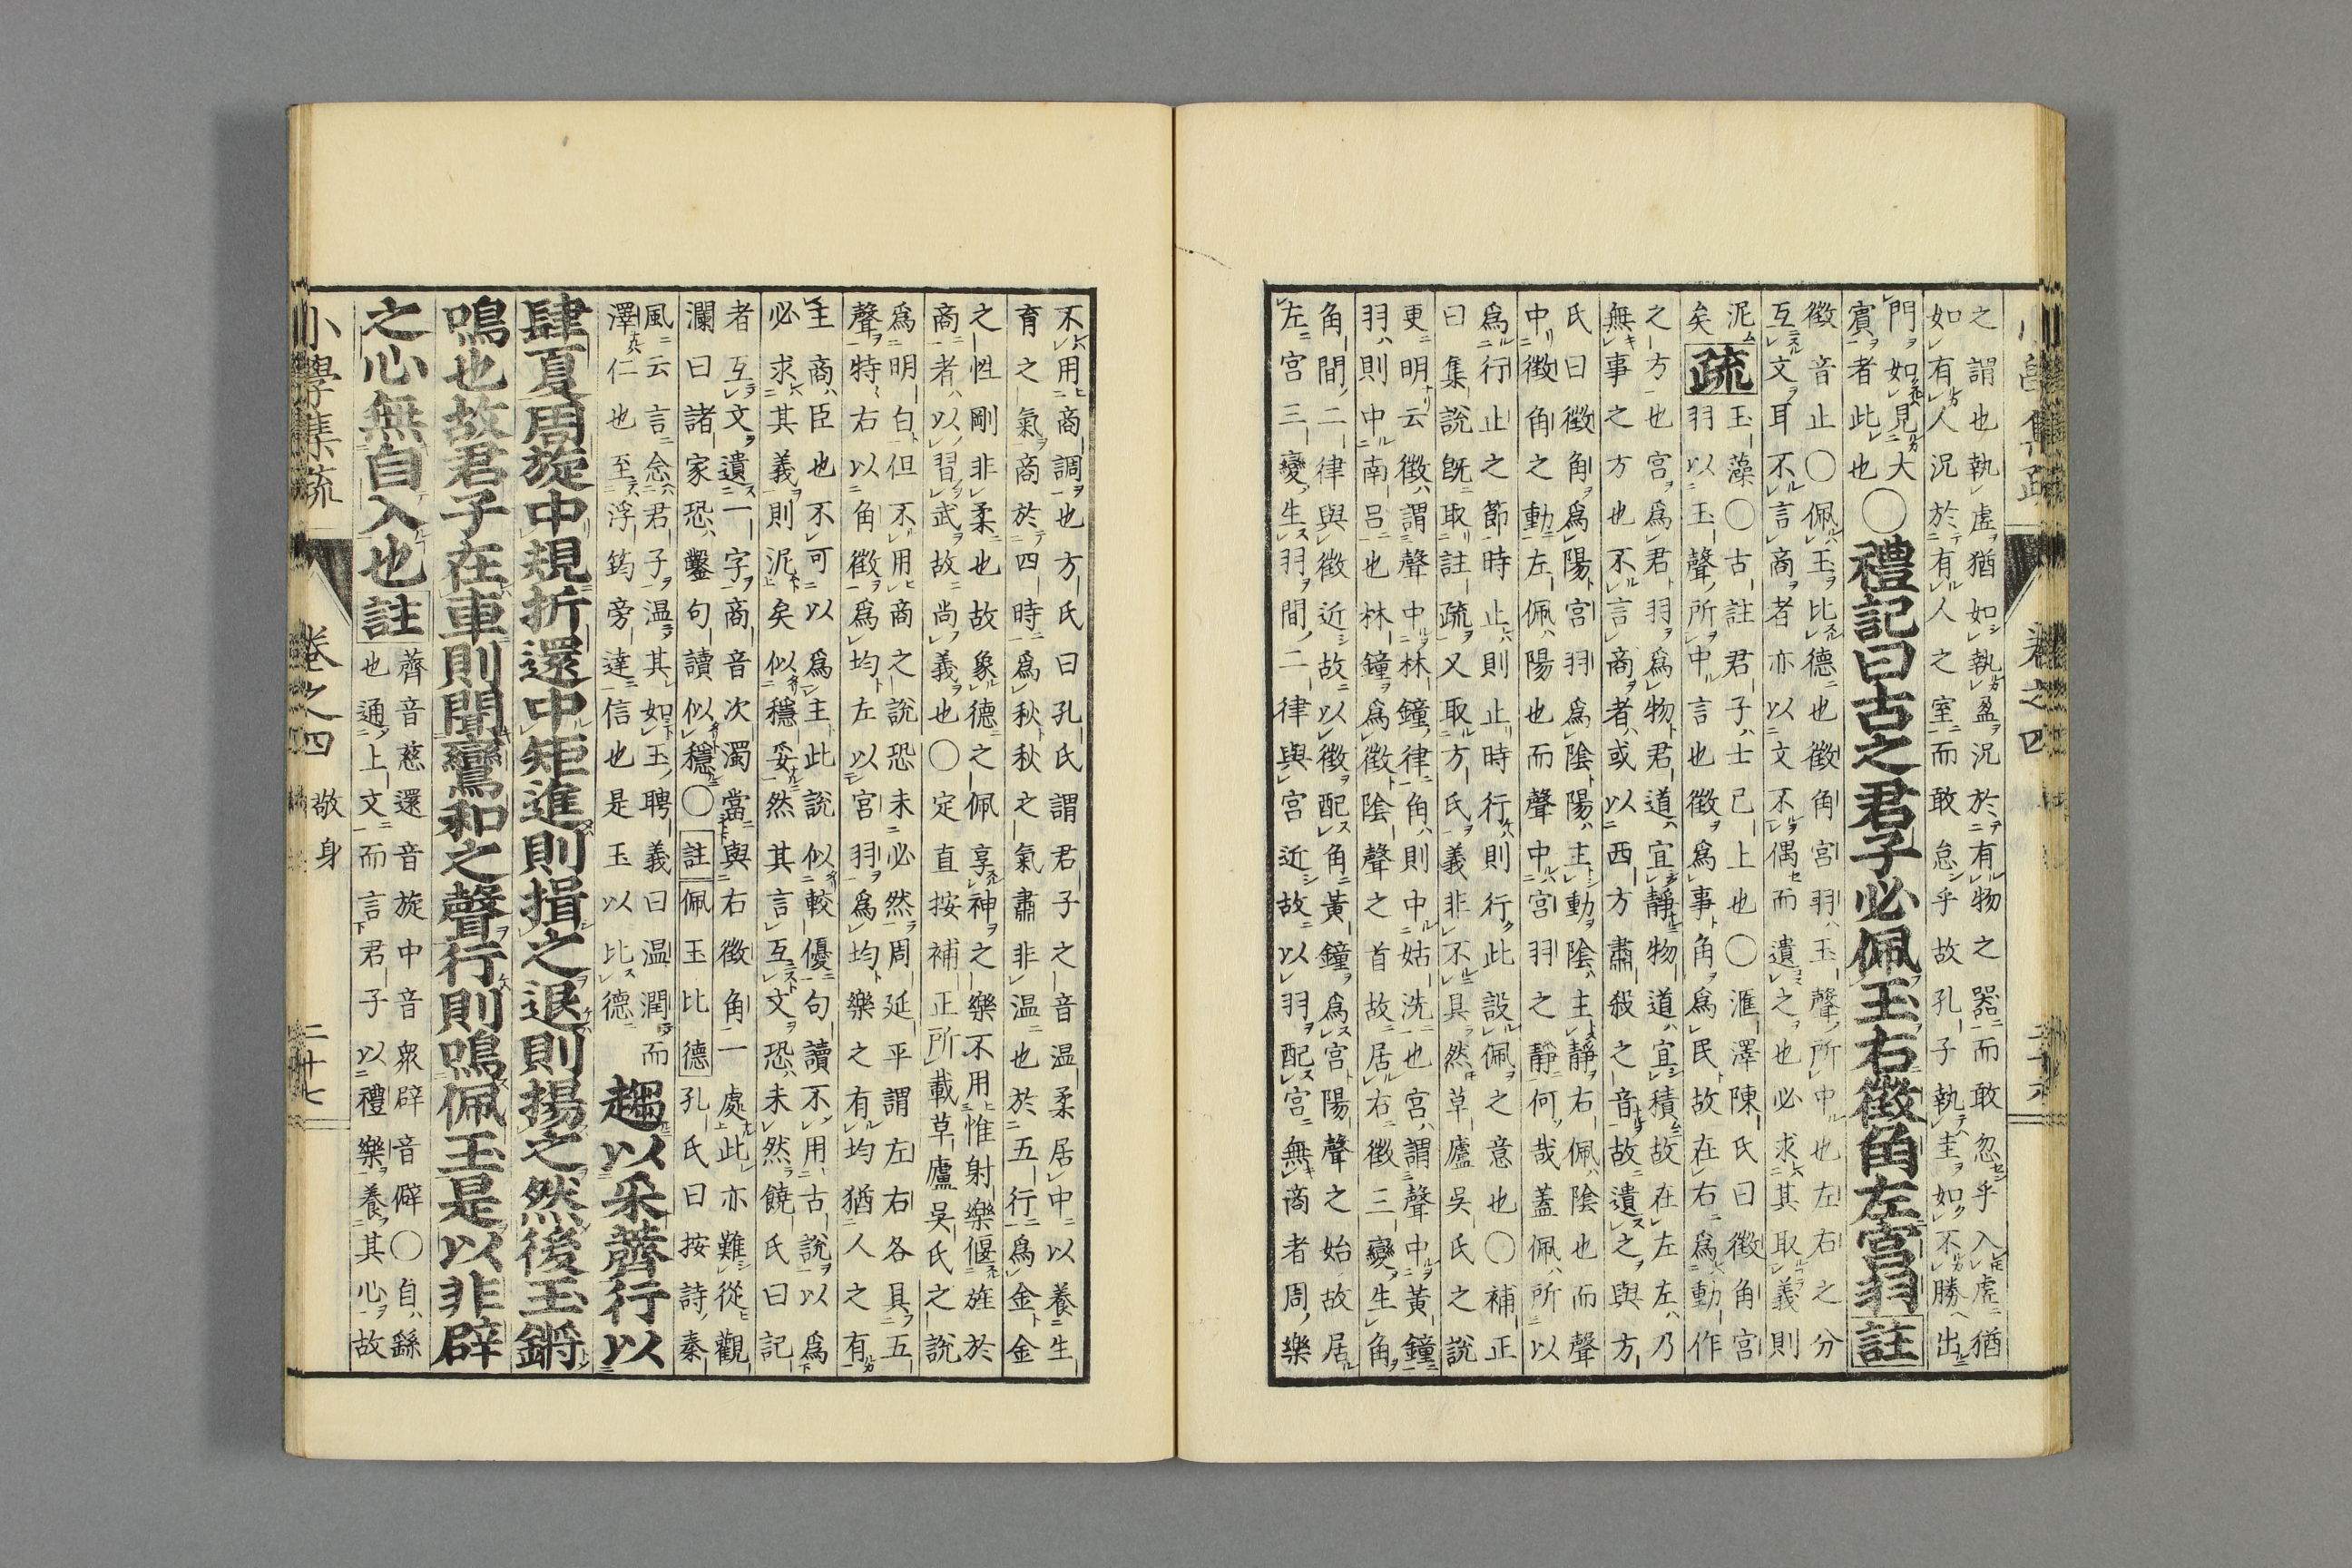 之謂也執虛猶如執盈況於有物之器而敢忽乎入虛猶
如有人況於有人之室而敢怠乎故孔子執圭如不勝出
門如見大
賓者此也
〇禮記曰古之君子必佩玉右徵角左宮羽註
徵音止〇佩玉比德也徵角宮羽玉聲所中也左右之分
互文耳不言商者亦以文不偶而遺之也必求其取義則
泥玉藻〇古註君子士已上也〇滙澤陳氏曰徵角宮
矣疏羽以玉聲所中言也徵爲事角爲民故在右爲動作
之方也宮爲君羽爲物君道宜靜物道宜積故在左左乃
無事之方也不言商者或以西方肅殺之音故遺之與方
氏曰徵角爲陽宮羽爲陰陽主動陰主靜右佩陰也而聲
中徵角之動左佩陽也而聲中宮羽之靜何哉蓋佩所以
爲行止之節時止則止時行則行此設佩之意也〇補正
曰集說既取註疏又取方氏義非不具然草廬吳氏之說
更明云徵謂聲中林鐘律角則中姑洗也宮謂聲中黃鐘
羽則中南呂也林鐘爲徵陰聲之首故居右徵三變生角
角間二律與徵近故以徵配角黃鐘爲宮陽聲之始故居
左宮三變生羽羽間二律與宮近故以羽配宮無商者周樂
不用商調也方氏曰孔氏謂君子之音温柔居中以養生
育之氣商於四時爲秋秋之氣肅非温也於五行爲金金
之性剛非柔也故象德之佩享神之樂不用惟射樂偃旌於
商者以習武故尚義也〇定直按補正所載草廬吳氏之說
爲明白但不用商之說恐未必然周延平謂左右各具五
聲特右以角徵爲均左以宮羽爲均樂之有均猶人之有
主商臣也不可以爲主此說似較優句讀不用古說以爲
必求其義則泥矣似穩妥然其言互文恐未然饒氏曰記
者互文遺一字商音次濁當與右徵角一處此亦難從觀
瀾曰諸家恐鑿句讀似穩〇註佩玉比德孔氏曰按詩秦
風云言念君子温其如玉聘義曰温潤而
澤仁也至浮筠旁達信也是玉以比德
趨以采薺行以
肆夏周旋中規折還中矩進則揖之退則揚之然後玉鏘
鳴也故君子在車則聞鸞和之聲行則鳴佩玉是以非辟
之心無自入也註
薺音慈還音旋中音衆辟音僻〇自繇
也通上文而言君子以禮樂養其心故
小學集疏 卷之四 敬身 二十七